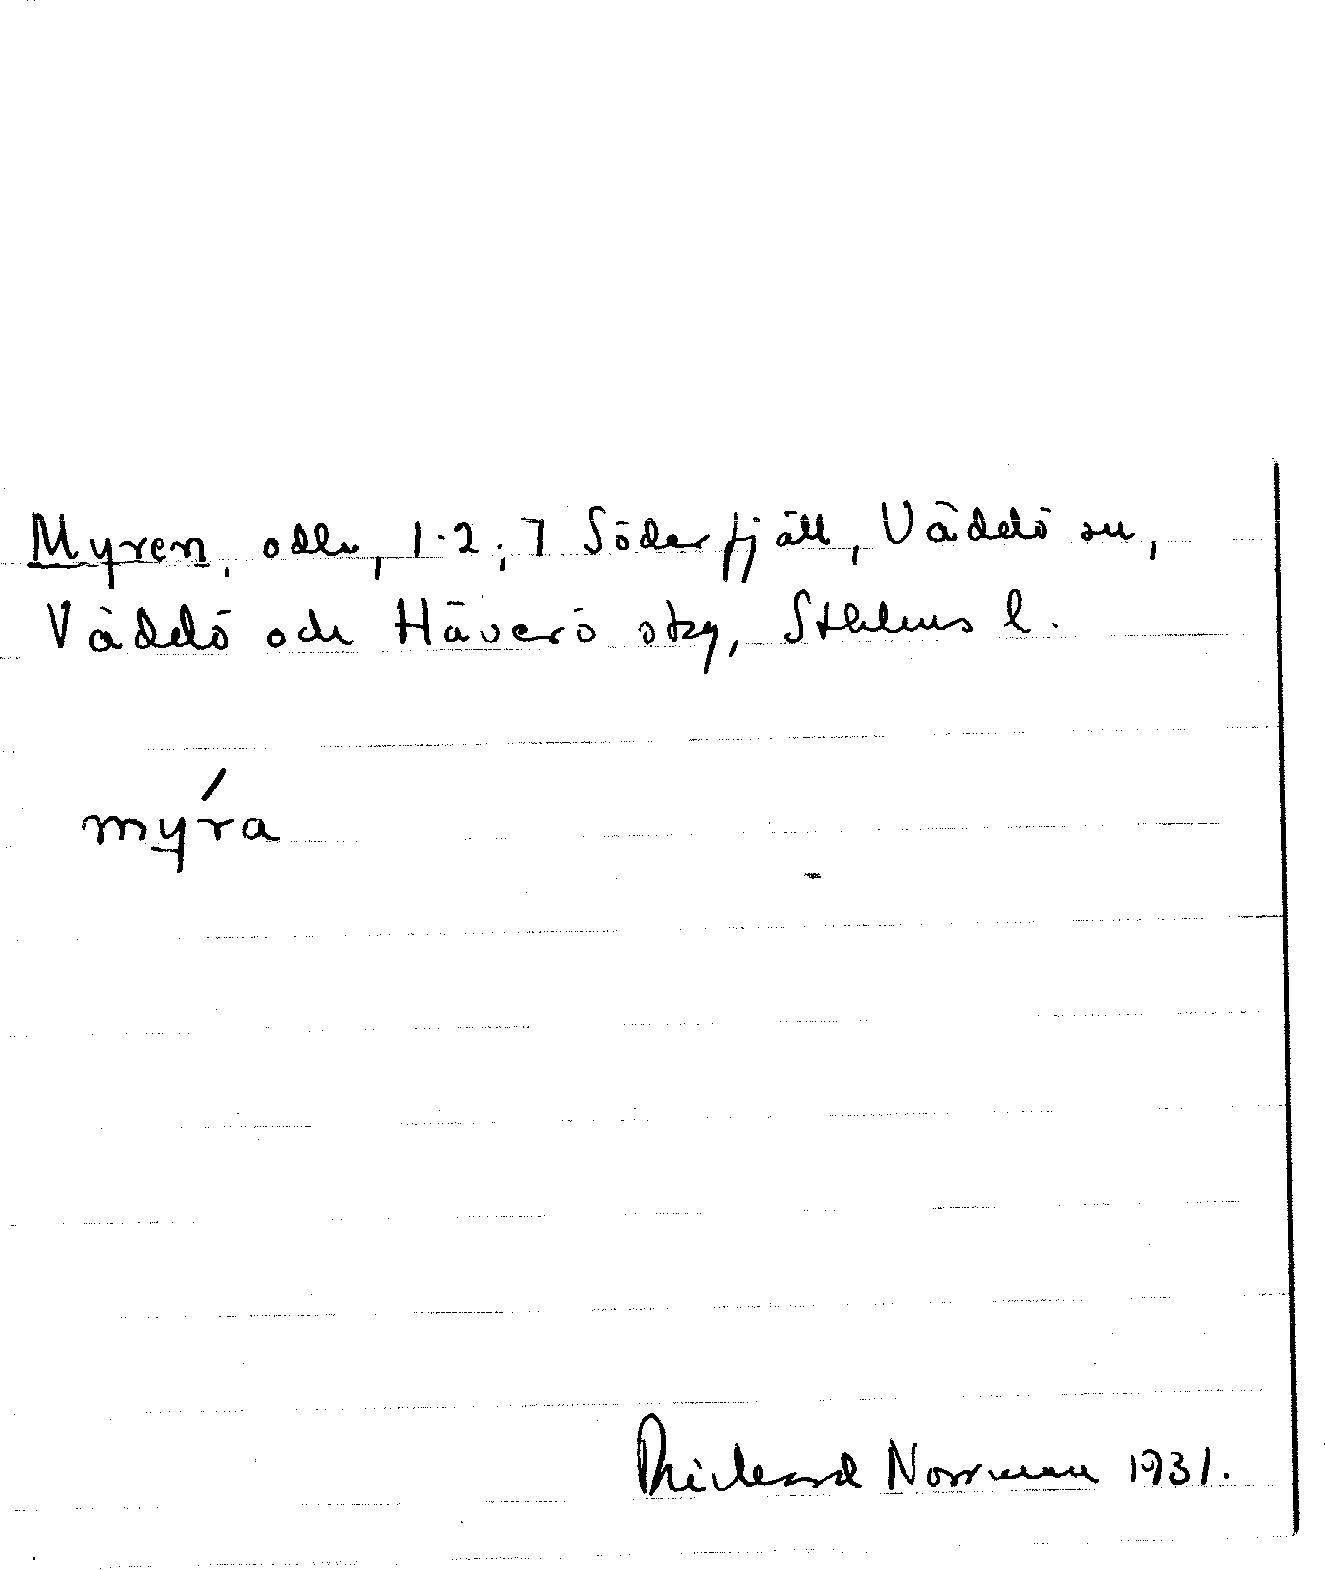 Myren, odln, 1-2; 7 Söderfjäll, Väddö sn,
Väddö och Häverö skg, Sthlms l.
mýra
Richard Norrman 1931.